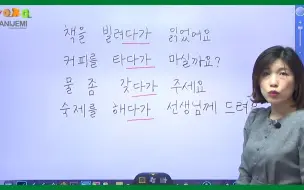 책을 빌려다가 읽었어요
커피를 타다가 마실까요?
물 좀 갖다가 주세요
숙제를 해다가 선생님께 드려